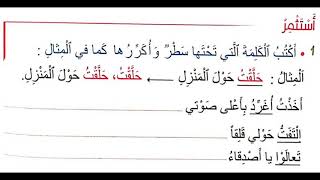 أَسْتَثْمِرُ
1 • أَكْتُبُ الْكَلِمَةَ الَّتِي تَحْتَها سَطْرٌ وَ أُكَرِّرُ ها كَما فِي الْمِثالِ :
الْمِثالُ : حَلَّقْتُ حَوْلَ الْمَنْزِلِ ← حَلَّقْتُ، حَلَّقْتُ حَوْلَ الْمَنْزِلِ.
أَخَذْتُ أُغَرِّدُ بِأَعْلى صَوْتي
الْتَفَتُّ حَوْلي قَلِقاً
تَعالَوْا يا أَصْدِقاءُ